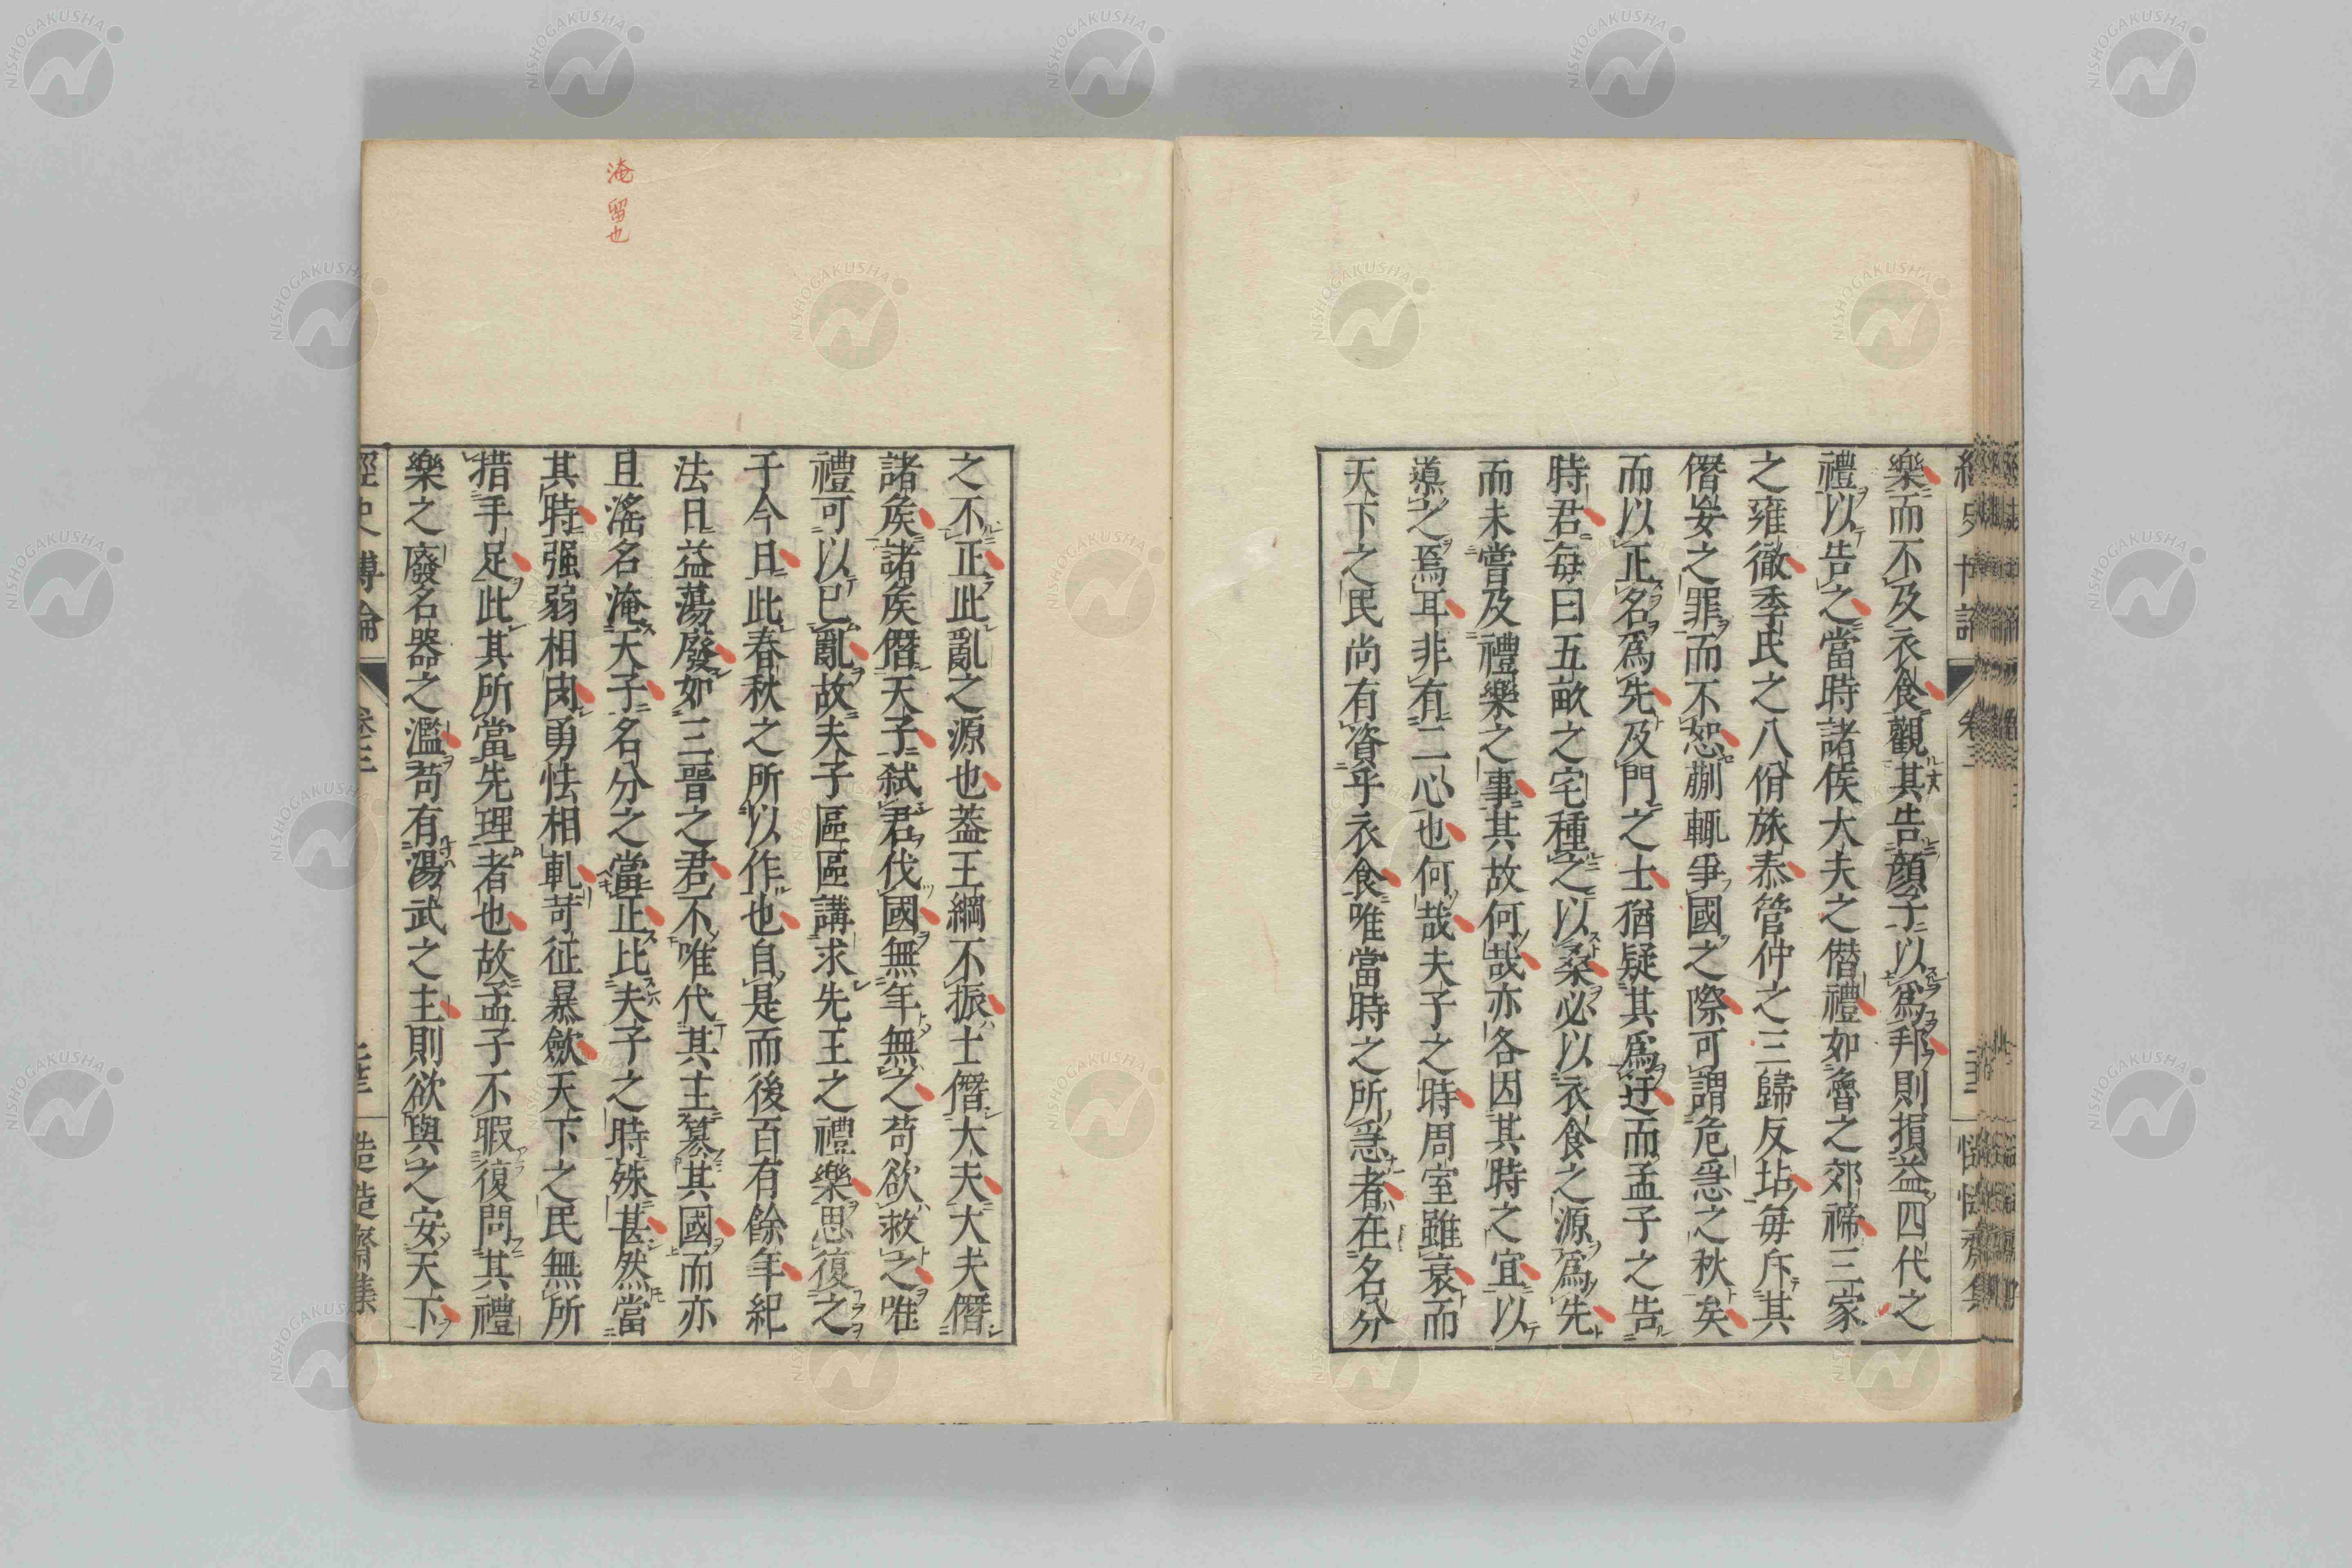 樂而不及衣食觀其告顏子以爲邦則損益四代之
禮以告之當時諸侯大夫之僭禮如魯之郊禘三家
之雍徹季氏之八佾旅泰管仲之三歸反坫每斥其
僭妄之罪而不恕蒯輒爭國之際可謂危急之秋矣
而以正名爲先及門之士猶疑其爲迂而孟子之告
時君每曰五畝之宅種之以桑必以衣食之源爲先
而未嘗及禮樂之事其故何哉亦各因其時之宜以
導之焉耳非有二心也何哉夫子之時周室雖衰而
天下之民尚有資乎衣食唯當時之所急者在名分
之不正此亂之源也蓋王綱不振士僭大夫大夫僭
諸矦諸矦僭天子弑君伐國無年無之苟欲救之唯
禮可以已亂故夫子區區講求先王之禮樂思復之
于今日此春秋之所以作也自是而後百有餘年紀
法日益蕩廢如三晉之君不唯代其主簒其國而亦
且滛名淹天子名分之當正比夫子之時殊甚然當
其時强弱相肉勇怯相軋苛征暴斂天下之民無所
措手足此其所當先理者也故孟子不暇復問其禮
樂之廢名器之濫苟有湯武之主則欲與之安天下
淹留也
經史博論
卷三
NISHOGAKUSHA